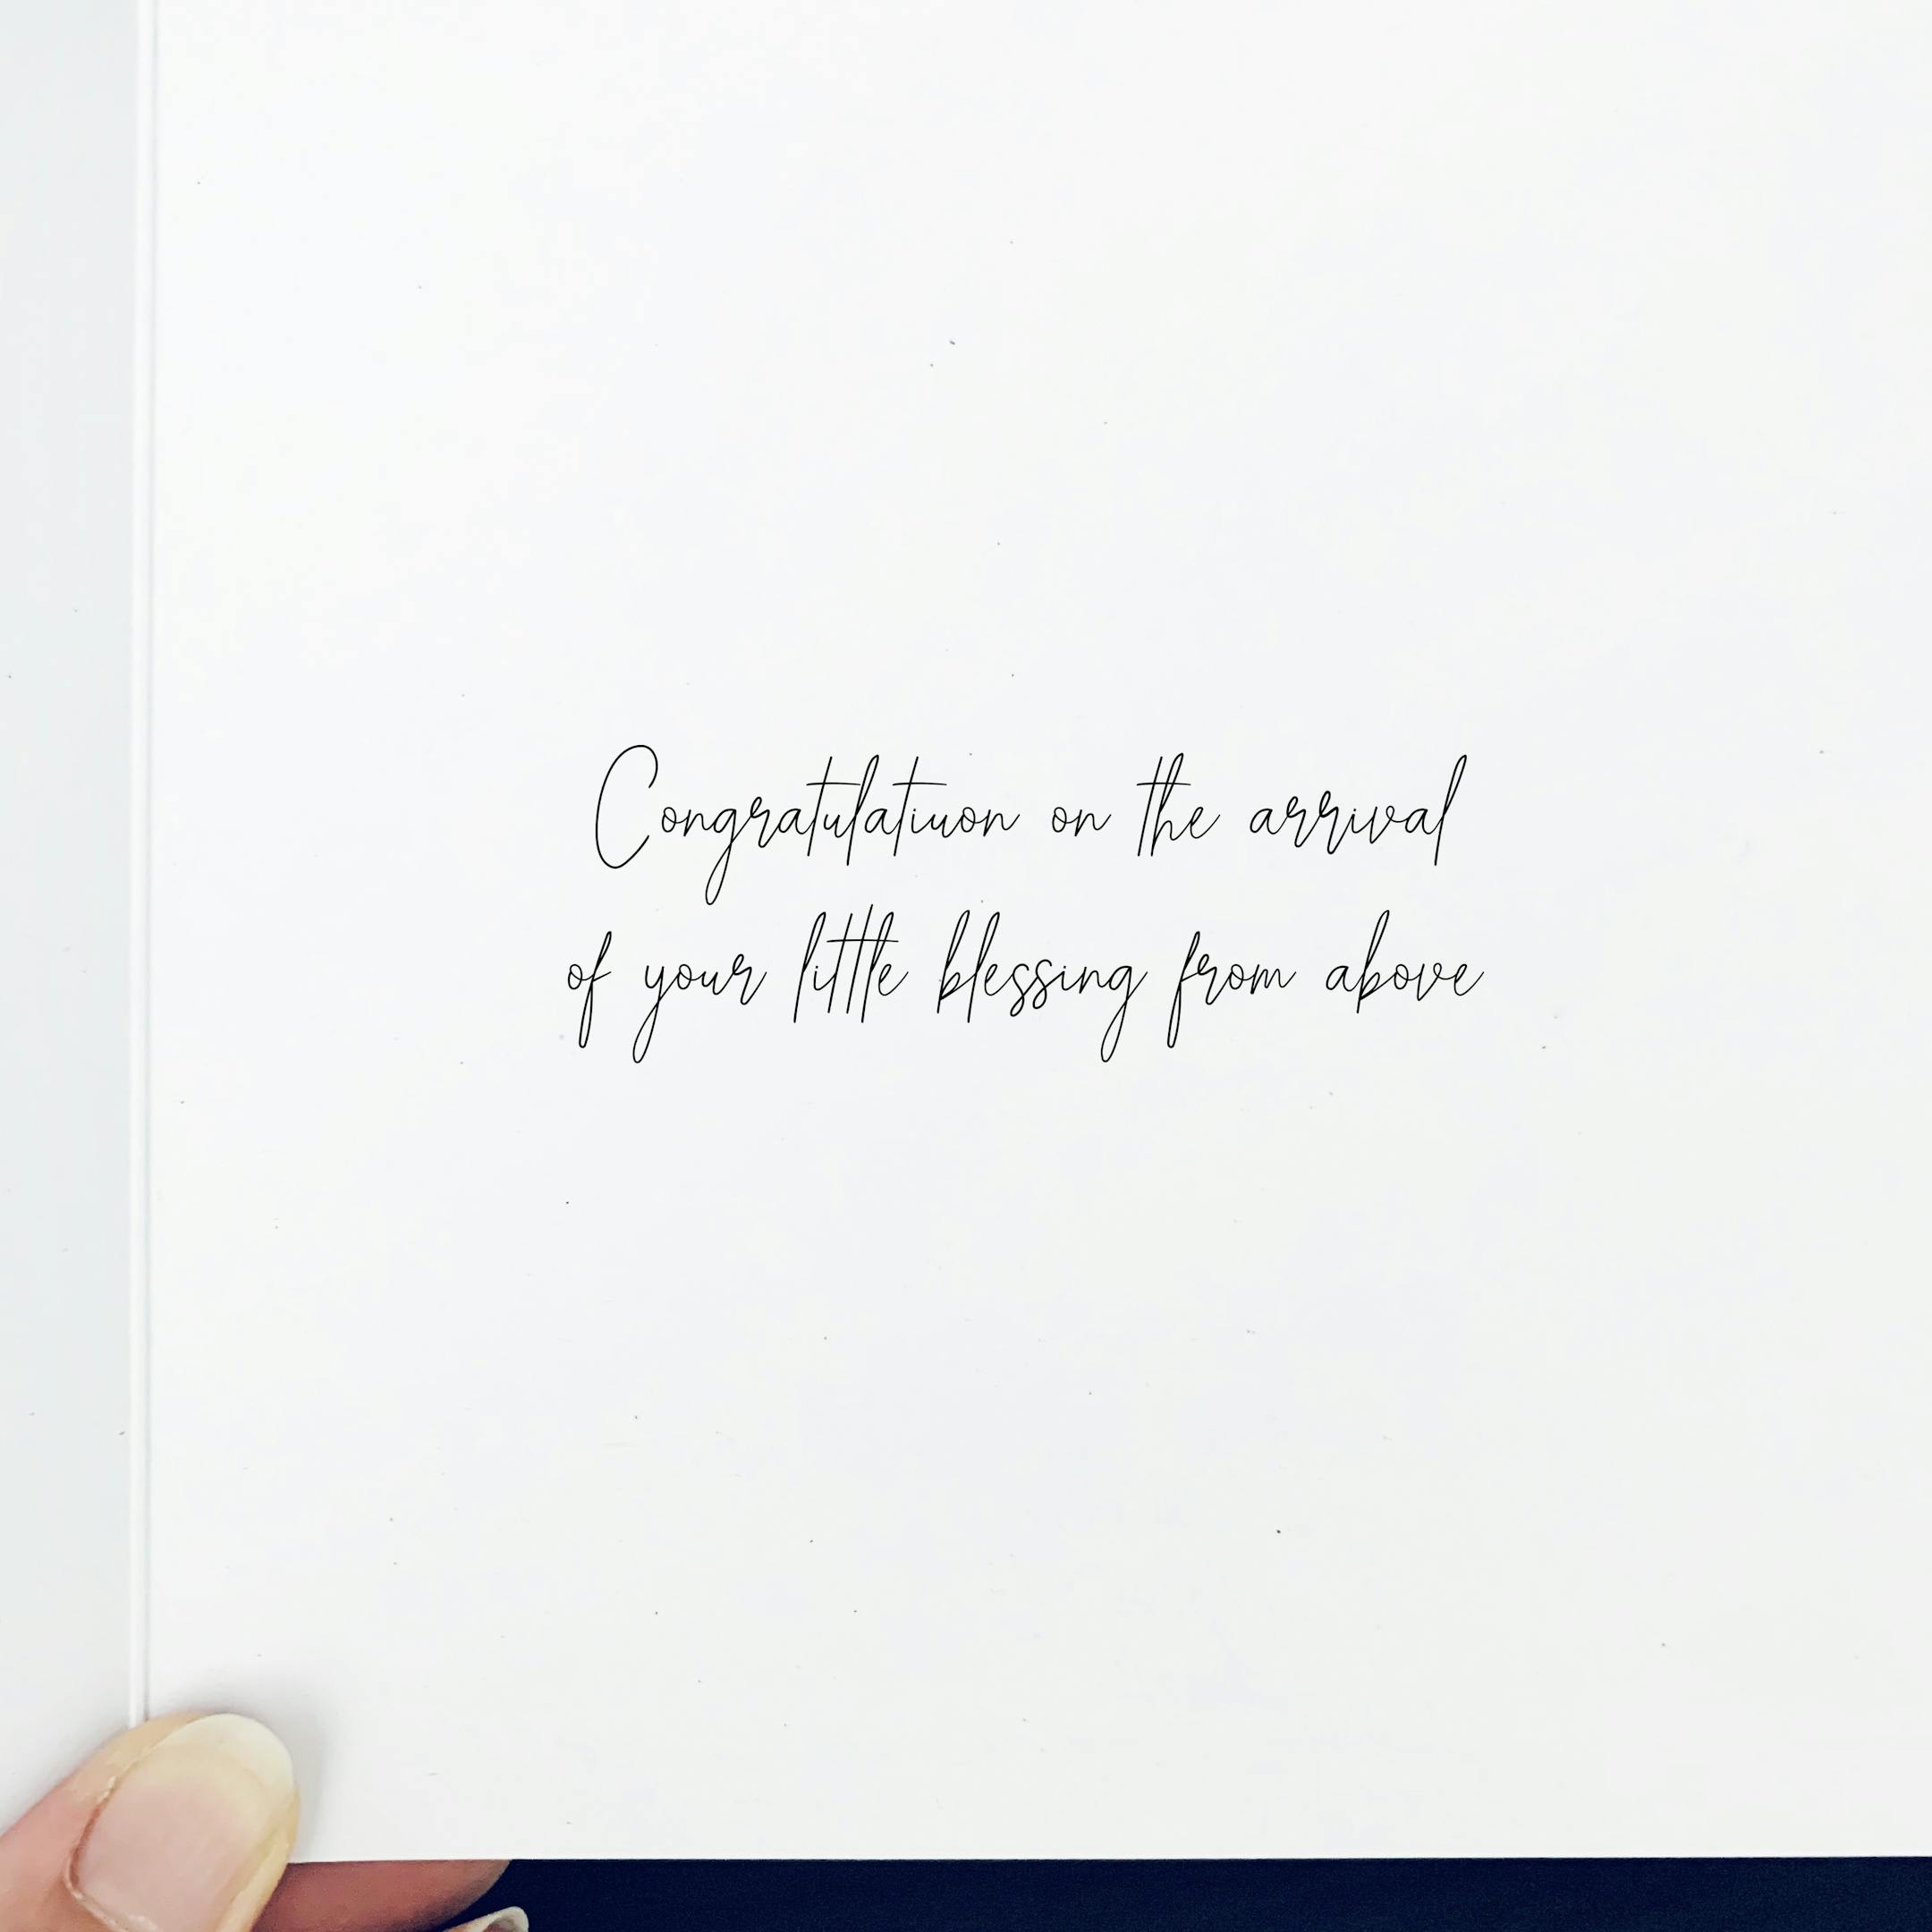 Congratulatiuon on the arrival
of your little blessing from above